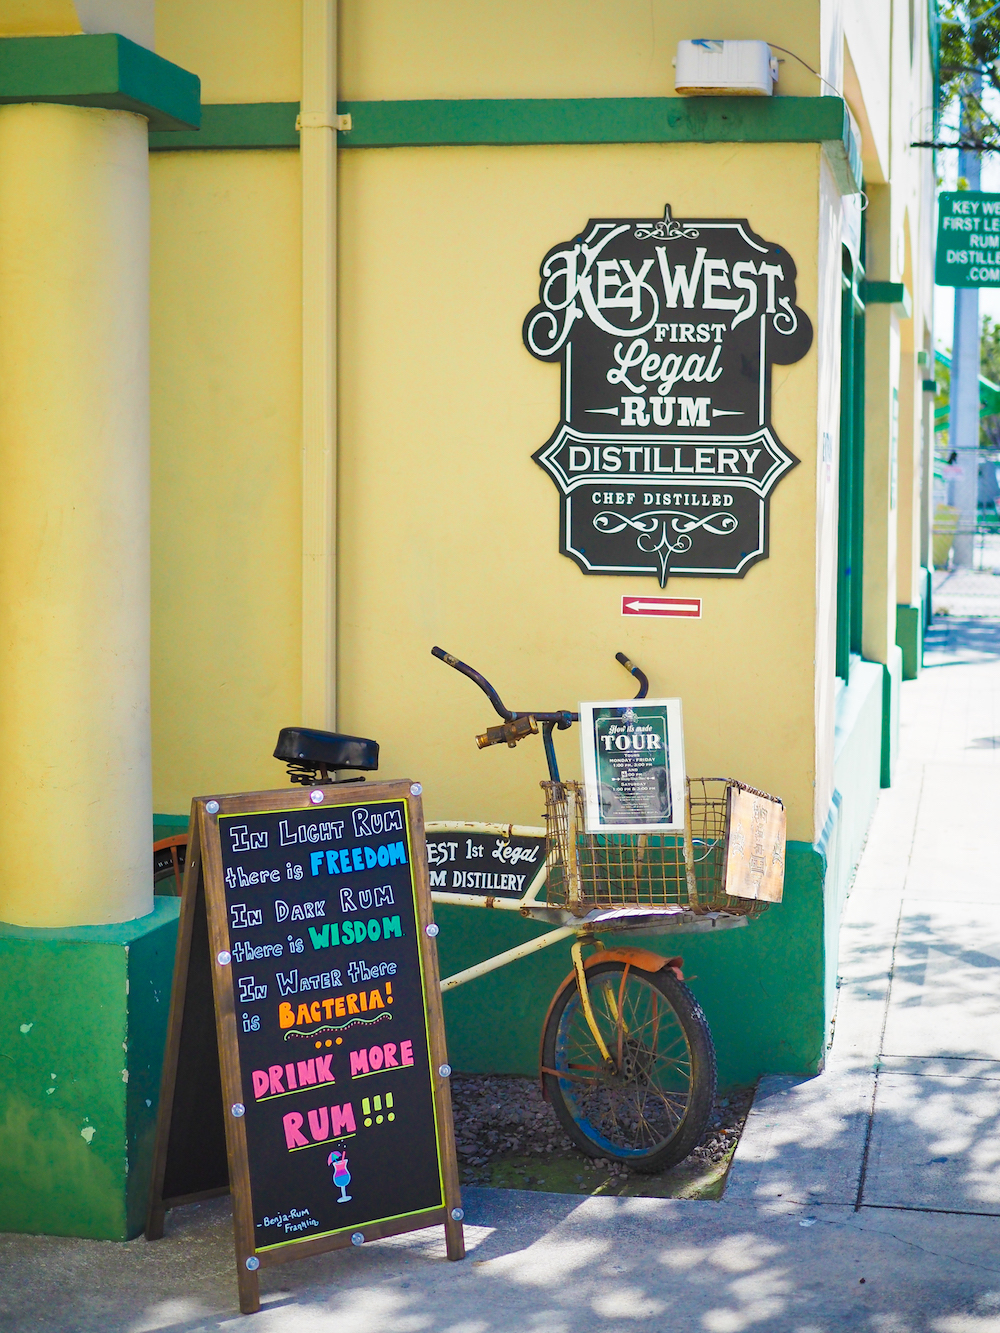 KEY WEST
FIRST
Legal
RUM
DISTILLERY
CHEF DISTILLED
KEY WE
FIRST LE
RUM
DISTILLE
.COM
How it's made
TOUR
TOURS
MONDAY - FRIDAY
1:00 PM, 3:00 PM
AND
SATURDAY
1:00 PM & 3:00 PM
EST 1st Legal
M DISTILLERY
IN LIGHT RUM
there is FREEDOM
IN DARK RUM
there is WISDOM
IN WATER there
is BACTERIA!
...
DRINK MORE
RUM!!!
- Benja-Rum
Franklin